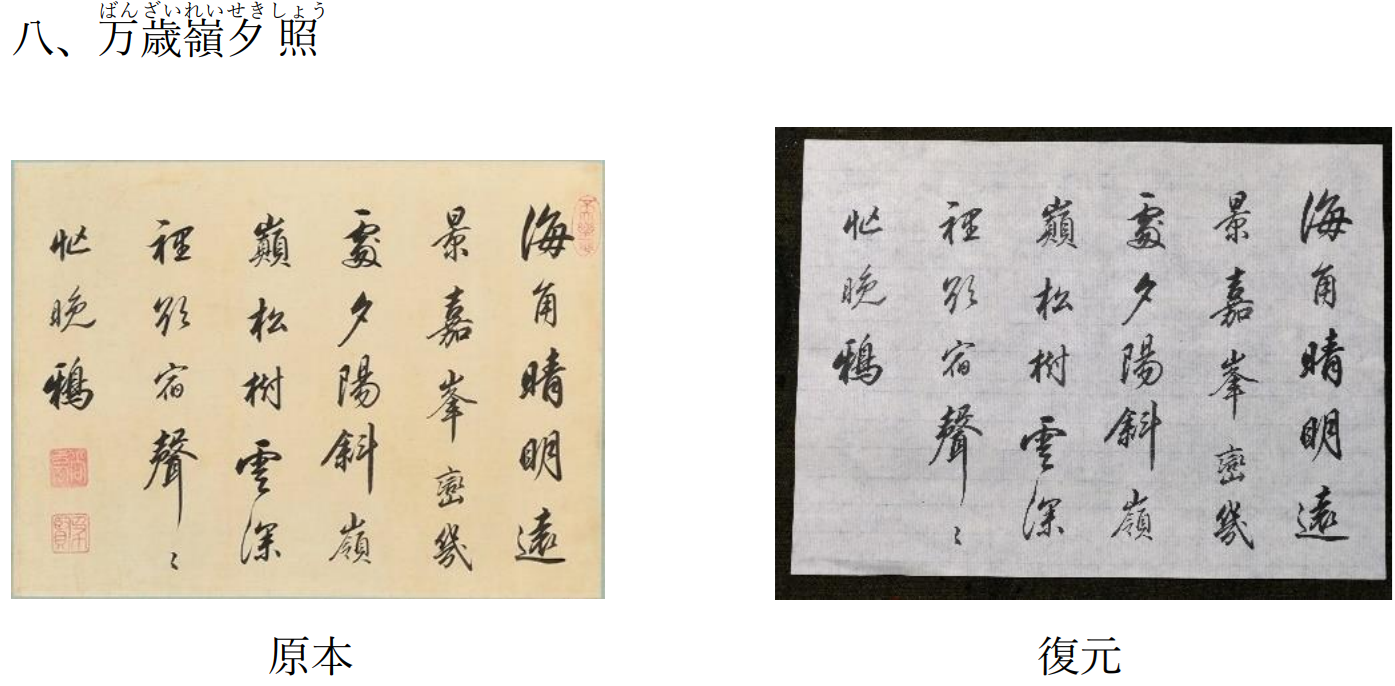 ばんざいれいせきしょう
八、万歳嶺夕照
海角晴明遠
景嘉峯巒幾
處夕陽斜嶺
巔松樹雲深
裡欲宿聲〻
忙晚鴉
原本
海角晴明遠
景嘉峯巒幾
處夕陽斜嶺
巔松樹雲深
裡欲宿聲〻
忙晚鴉
復元